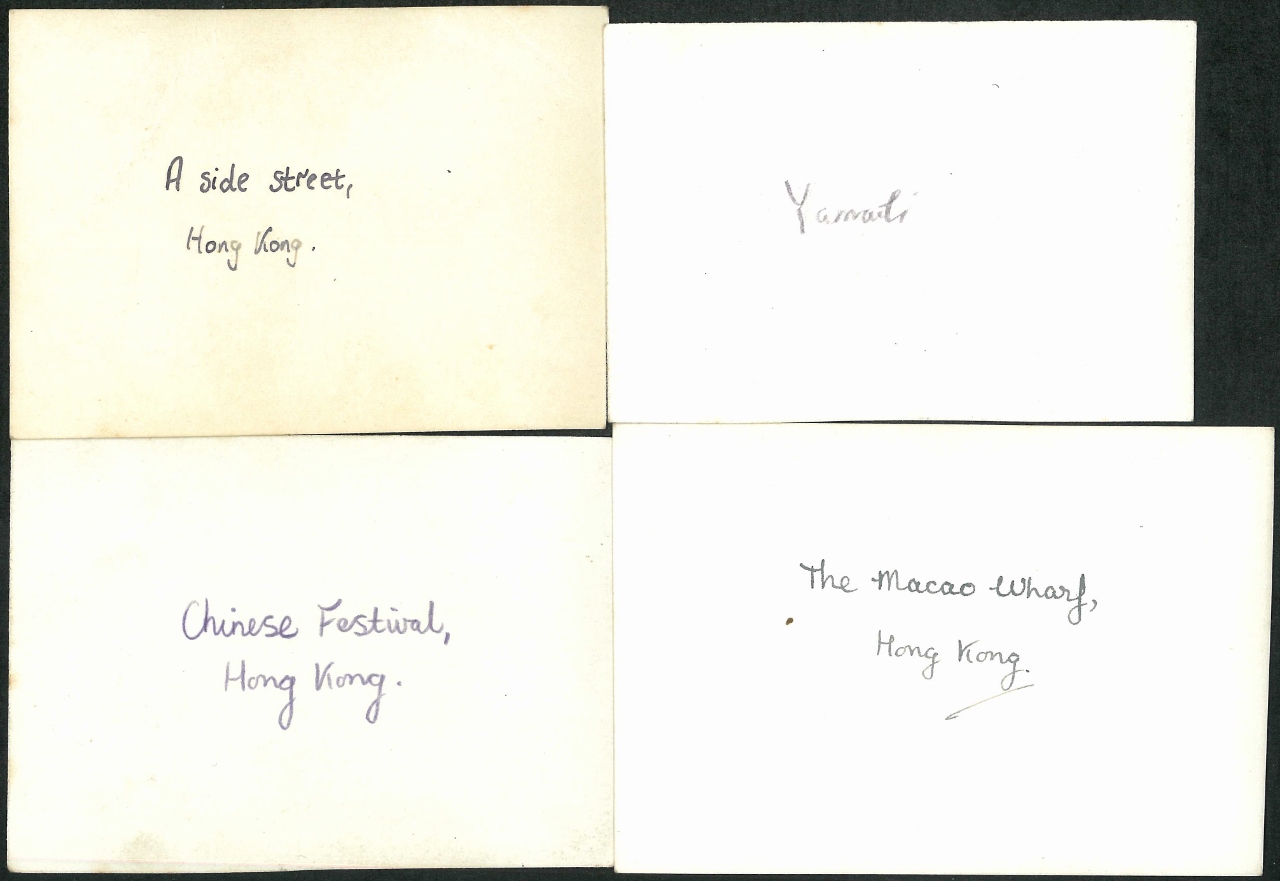 A side street,
Hong Kong.
Yamati
Chinese Festival,
Hong Kong.
The Macao Wharf,
Hong Kong.